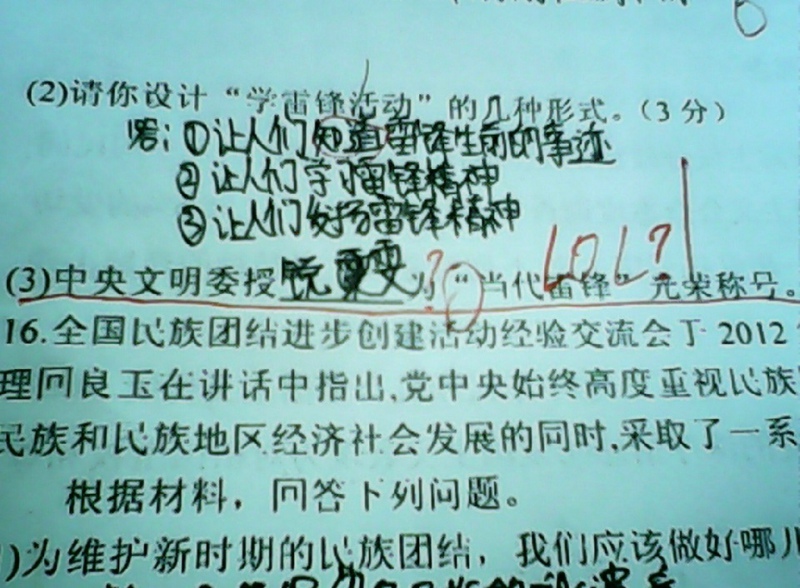 (2)请你设计“学雷锋活动”的几种形式。(3分)
答:①让人们知道雷锋生前的事迹
②让人们学习雷锋精神
③让人们发扬雷锋精神
LOL?
(3)中央文明委授 为“当代雷锋”光荣称号。
?
16.全国民族团结进步创建活动经验交流会于2012
理回良玉在讲话中指出,党中央始终高度重视民族
民族和民族地区经济社会发展的同时,采取了一系
根据材料,回答下列问题。
)为维护新时期的民族团结,我们应该做好哪